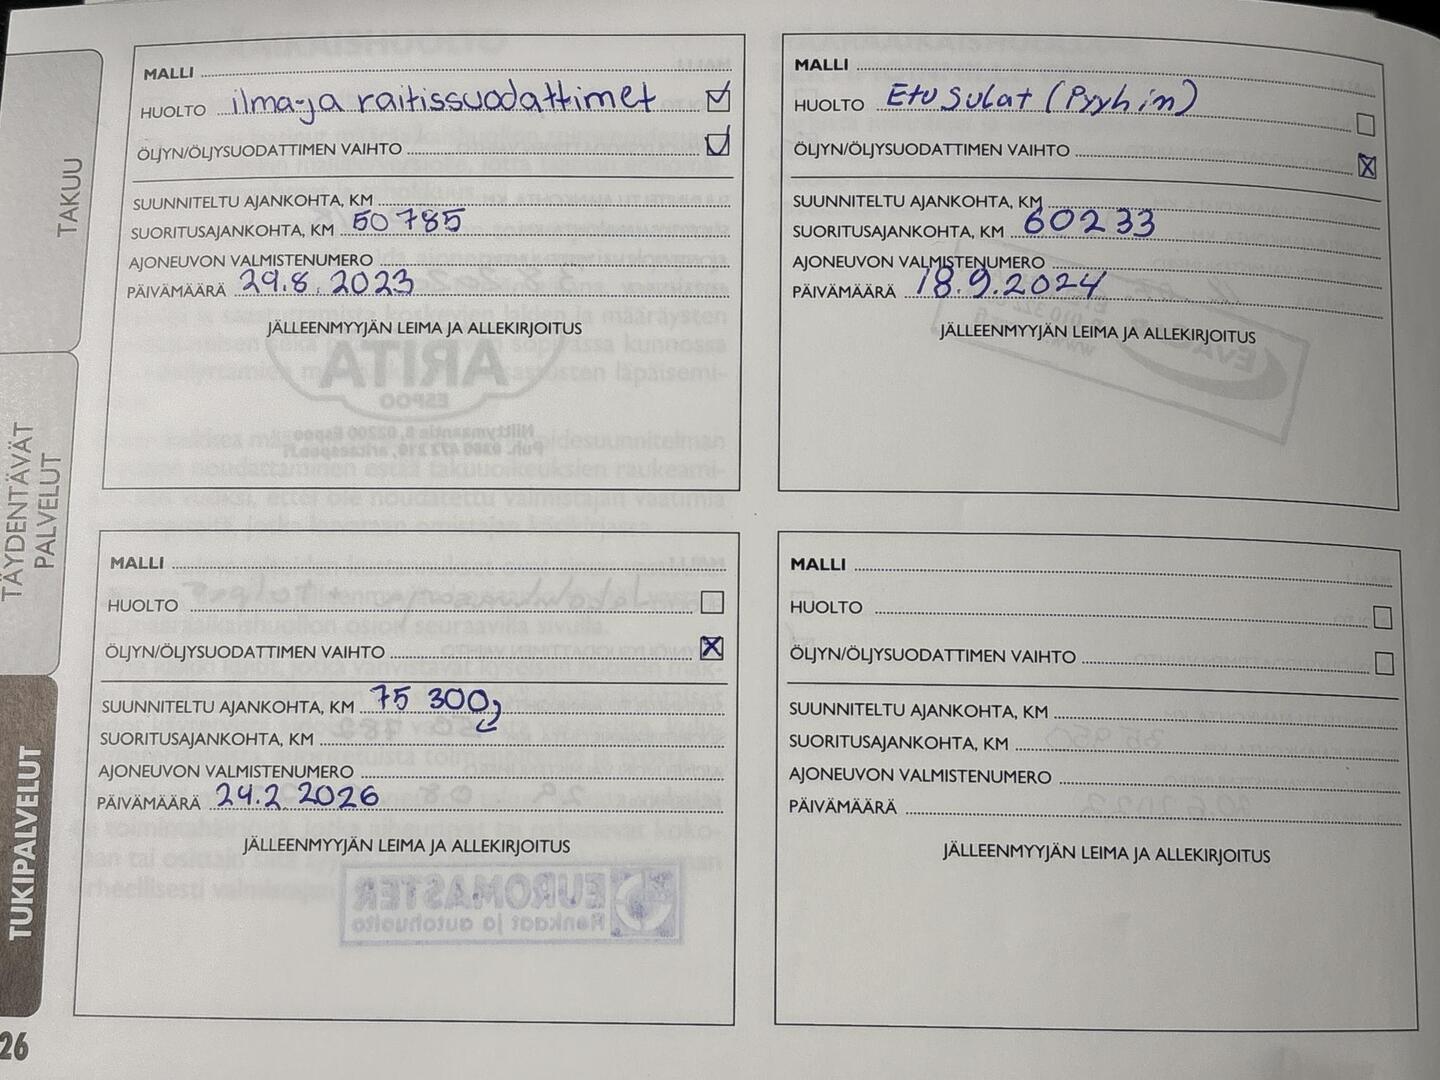 TAKUU
TÄYDENTÄVÄT
PALVELUT
TUKIPALVELUT
26
MALLI
HUOLTO ilma-ja raitissuodattimet
ÖLJYN/ÖLJYSUODATTIMEN VAIHTO
SUUNNITELTU AJANKOHTA, KM
SUORITUSAJANKOHTA, KM 50 785
AJONEUVON VALMISTENUMERO
PÄIVÄMÄÄRÄ 29.8.2023
JÄLLEENMYYJÄN LEIMA JA ALLEKIRJOITUS
ARITA
ESPOO
Niittymaantie 8, 02200 Espoo
MALLI
HUOLTO Etu sulat (Pyyhin)
ÖLJYN/ÖLJYSUODATTIMEN VAIHTO
SUUNNITELTU AJANKOHTA, KM
SUORITUSAJANKOHTA, KM 60233
AJONEUVON VALMISTENUMERO
PÄIVÄMÄÄRÄ 18.9.2024
JÄLLEENMYYJÄN LEIMA JA ALLEKIRJOITUS
MALLI
HUOLTO
ÖLJYN/ÖLJYSUODATTIMEN VAIHTO
SUUNNITELTU AJANKOHTA, KM 75 300
SUORITUSAJANKOHTA, KM
AJONEUVON VALMISTENUMERO
PÄIVÄMÄÄRÄ 24.2.2026
JÄLLEENMYYJÄN LEIMA JA ALLEKIRJOITUS
EUROMASTER
Renkaat ja autohuolto
MALLI
HUOLTO
ÖLJYN/ÖLJYSUODATTIMEN VAIHTO
SUUNNITELTU AJANKOHTA, KM
SUORITUSAJANKOHTA, KM
AJONEUVON VALMISTENUMERO
PÄIVÄMÄÄRÄ
JÄLLEENMYYJÄN LEIMA JA ALLEKIRJOITUS